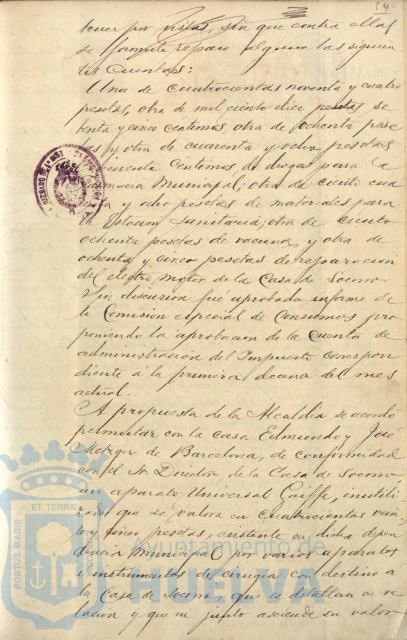 tener por vistas, sin que contra ellas
se formule reparo alguno las siguien
tes Cuentas:
Una de cuatrocientas noventa y cuatro
pesetas, otra de mil ciento diez pesetas se
tenta y cinco centimos, otra de ochenta pese
tas y otra de cuarenta y ocho pesetas
cincuenta centimos de drogas para la
Farmacia Municipal; otra de ciento cua
renta y ocho pesetas de materiales para
la Estacion Sanitaria; otra de ciento
ochenta pesetas de vacuna, y otra de
ochenta y cinco pesetas de reparacion
del electro motor de la Casa de Socorro
Sin discusion fué aprobado informe de
la Comisión especial de Consumos pro
poniendo la aprobacion de la cuenta de
administración del Impuesto correspon
diente á la primera decena del mes
actual.
A propuesta de la Alcaldia se acordó
permutar con la casa Edmundo y José
Metzger de Barcelona, de conformidad
con el Sr. Director de la Casa de Socorro
un aparato Universal Gaiffe, inutili
zado que se valora en cuatrocientas vein
te y cinco pesetas, existente en dicha depen
dencia municipal por varios aparatos
é instrumentos de cirugia con destino a
la Casa de Socorro que se detallan en re
lacion y que en junto asciende su valor
PORTUS MARIS
ET TERRAE
Ayuntamiento de
HUELVA